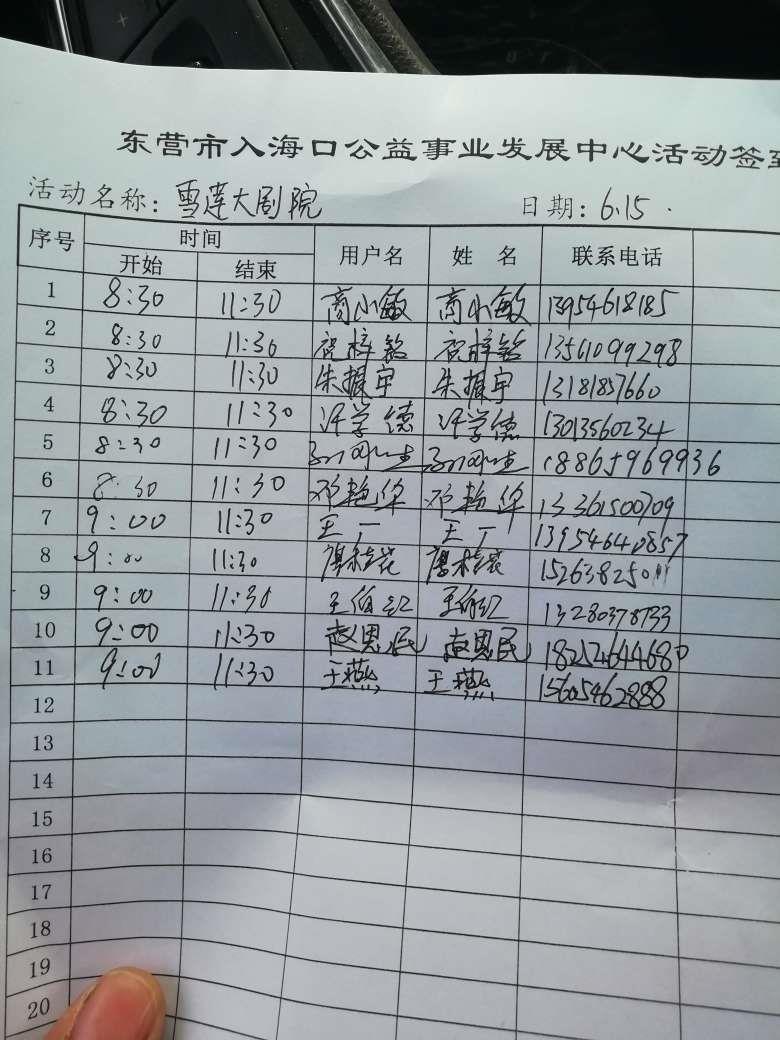 东营市入海口公益事业发展中心活动签至
活动名称：雪莲大剧院 日期：6.15.
序号 时间 用户名 姓名 联系电话
开始 结束
1 8:30 11:30 商小敏 商小敏 13954618185
2 8:30 11:30 祝梓铭 祝梓铭 13561099298
3 8:30 11:30 朱振宇 朱振宇 13181857660
4 8:30 11:30 许学德 许学德 13013560234
5 8:30 11:30 18865969936
6 8:30 11:30 邓艳华 邓艳华 13361500709
7 9:00 11:30 王丁 王丁 13954640857
8 9:00 11:30 桂花 桂花 15263825011
9 9:00 11:30 王伯红 王伯红 13280378733
10 9:00 11:30 赵恩民 赵恩民 182524644680
11 9:00 11:30 王燕 王燕 15605462888
12
13
14
15
16
17
18
19
20